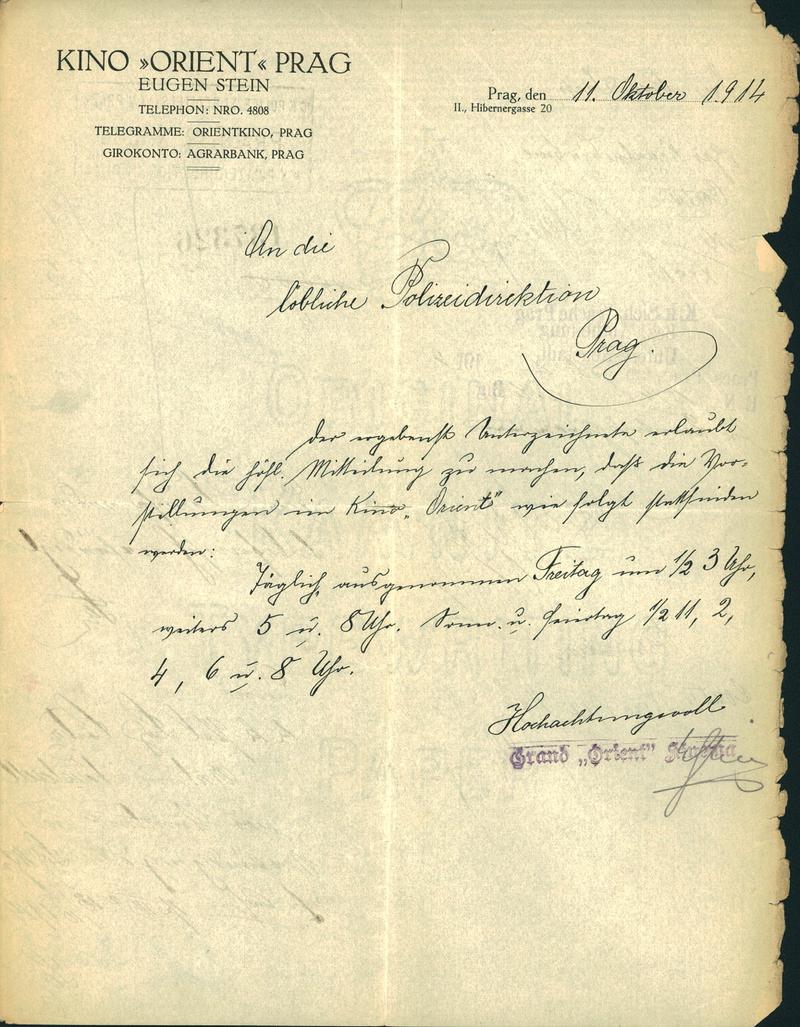 KINO »ORIENT« PRAG
EUGEN STEIN
TELEPHON: NRO. 4808
TELEGRAMME: ORIENTKINO, PRAG
GIROKONTO: AGRARBANK, PRAG
Prag, den 11. Oktober 1914
II., Hibernergasse 20
An die
löbliche Polizeidirektion
Prag.
Der ergebenst Unterzeichnete erlaubt
sich die höfl. Mitteilung zu machen, daß die Vor-
stellungen im Kino „Orient" wie folgt stattfinden
werden:
Täglich, ausgenommen Freitag um 1/2 3 Uhr,
weiters 5 u. 8 Uhr. Sonn. u. Feiertag 1/2 11, 2,
4, 6 u. 8 Uhr.
Hochachtungsvoll
Grand „Orient" Kinema
EStein